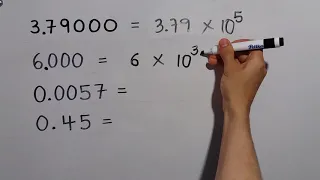 3.79000 = 3.79 × 10⁵
6.000 = 6 × 10³
0.0057 =
0.45 =